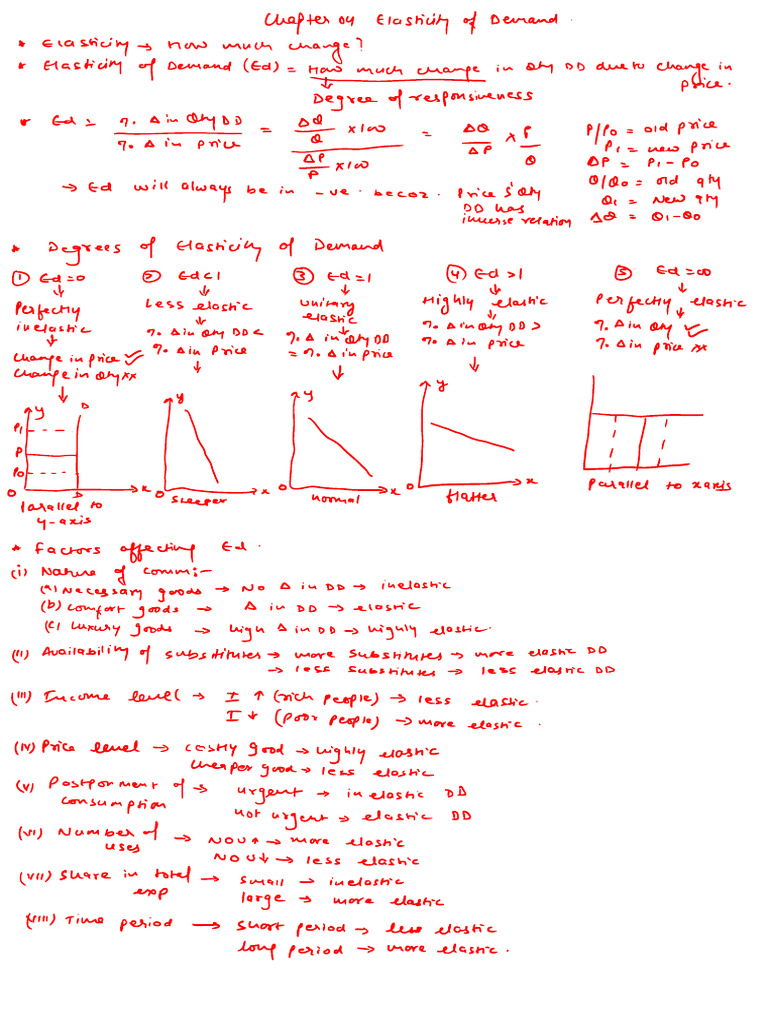 Chapter 04 Elasticity of Demand.
* Elasticity → How much change?
* Elasticity of Demand (Ed) = How much change in Qty DD due to change in price.
↓
Degree of responsiveness
* Ed = % Δ in Qty DD / % Δ in price = ΔQ/Q × 100 / ΔP/P × 100 = ΔQ/ΔP × P/Q
P/P0 = old price
P1 = new price
ΔP = P1 - P0
Q/Q0 = old qty
Q1 = New qty
ΔQ = Q1 - Q0
→ Ed will always be in -ve. becoz. Price & Qty DD has inverse relation
* Degrees of Elasticity of Demand
① Ed = 0
↓
Perfectly inelastic
↓
Change in price ✓
Change in Qty xx
↓
② Ed < 1
↓
Less elastic
↓
% Δ in Qty DD <
% Δ in Price
↓
③ Ed = 1
↓
Unitary elastic
↓
% Δ in Qty DD
= % Δ in price
↓
④ Ed > 1
↓
Highly elastic
↓
% Δ in Qty DD >
% Δ in price
↓
⑤ Ed = ∞
↓
Perfectly elastic
↓
% Δ in Qty ✓
% Δ in price xx
y D
P1
P
P0
O D x
Parallel to
y-axis
y
O x
Steeper
y
O x
normal
y
O x
flatter
Parallel to xaxis
* Factors affecting Ed.
(i) Nature of comm:-
(a) Necessary goods → No Δ in DD → inelastic
(b) Comfort goods → Δ in DD → elastic
(c) Luxury goods → high Δ in DD → highly elastic.
(ii) Availability of substitutes → more substitutes → more elastic DD
→ less substitutes → less elastic DD
(iii) Income level → I ↑ (rich people) → less elastic.
I ↓ (poor people) → more elastic.
(iv) Price level → costly good → highly elastic
Cheaper good → less elastic
(v) Postponment of → urgent → inelastic DD
consumption
not urgent → elastic DD
(vi) Number of → NOU↑ → more elastic
uses
NOU↓ → less elastic
(vii) Share in total → small → inelastic
exp large → more elastic
(viii) Time period → short period → less elastic
long period → more elastic.